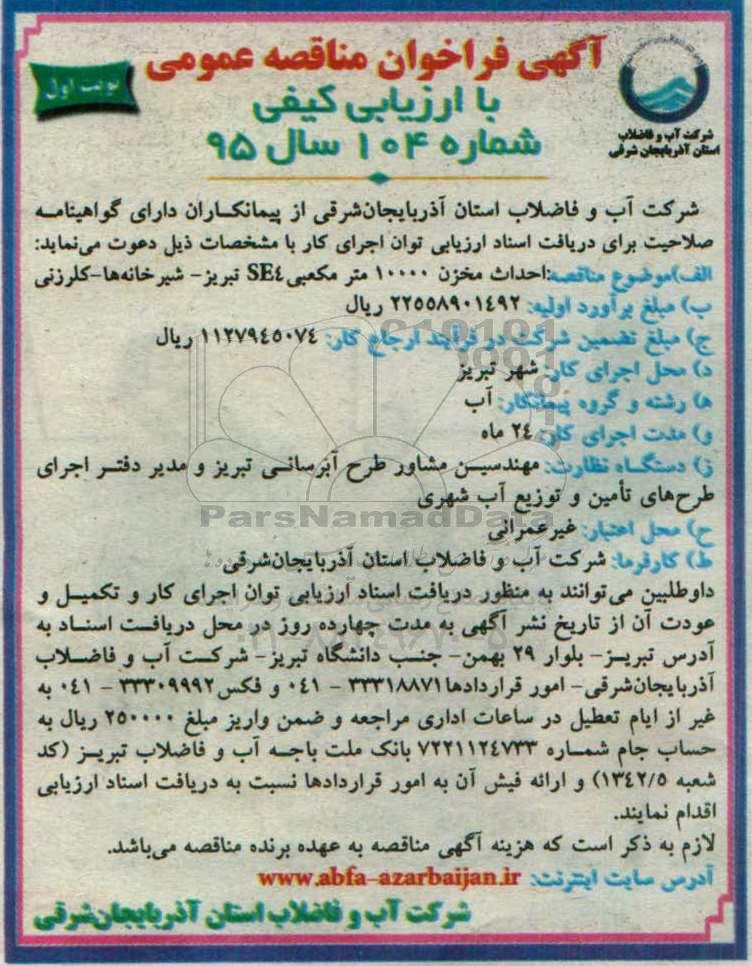 آگهی فراخوان مناقصه عمومی
با ارزیابی کیفی
شماره ۱۰۴ سال ۹۵
نوبت اول
شرکت آب و فاضلاب
استان آذربایجان شرقی
شرکت آب و فاضلاب استان آذربایجان‌شرقی از پیمانکاران دارای گواهینامه
صلاحیت برای دریافت اسناد ارزیابی توان اجرای کار با مشخصات ذیل دعوت می‌نماید:
الف)موضوع مناقصه:احداث مخزن ۱۰۰۰۰ متر مکعبی SE٤ تبریز- شیرخانه‌ها-کلرزنی
ب) مبلغ برآورد اولیه: ۲۲۵۵۸۹۰۱۴۹۲ ریال
ج) مبلغ تضمین شرکت در فرآیند ارجاع کار: ۱۱۲۷۹٤۵۰۷٤ ریال
د) محل اجرای کار: شهر تبریز
ه) رشته و گروه پیمانکار: آب
و) مدت اجرای کار: ۲٤ ماه
ز) دستگاه نظارت: مهندسین مشاور طرح آبرسانی تبریز و مدیر دفتر اجرای
طرح‌های تأمین و توزیع آب شهری
ParsNamadData
ح) محل اعتبار: غیرعمرانی
ط) کارفرما: شرکت آب و فاضلاب استان آذربایجان‌شرقی
داوطلبین می‌توانند به منظور دریافت اسناد ارزیابی توان اجرای کار و تکمیل و
عودت آن از تاریخ نشر آگهی به مدت چهارده روز در محل دریافت اسناد به
آدرس تبریز- بلوار ۲۹ بهمن- جنب دانشگاه تبریز- شرکت آب و فاضلاب
آذربایجان‌شرقی- امور قراردادها ۳۳۳۱۸۸۷۱ - ۰٤۱ و فکس ۳۳۳۰۹۹۹۲ - ۰٤۱ به
غیر از ایام تعطیل در ساعات اداری مراجعه و ضمن واریز مبلغ ۲۵۰۰۰۰ ریال به
حساب جام شماره ۷۲۲۱۱۲٤۷۳۳ بانک ملت باجه آب و فاضلاب تبریز (کد
شعبه ۱۳٤۲/۵) و ارائه فیش آن به امور قراردادها نسبت به دریافت اسناد ارزیابی
اقدام نمایند.
لازم به ذکر است که هزینه آگهی مناقصه به عهده برنده مناقصه می‌باشد.
آدرس سایت اینترنت: www.abfa-azarbaijan.ir
شرکت آب و فاضلاب استان آذربایجان‌شرقی